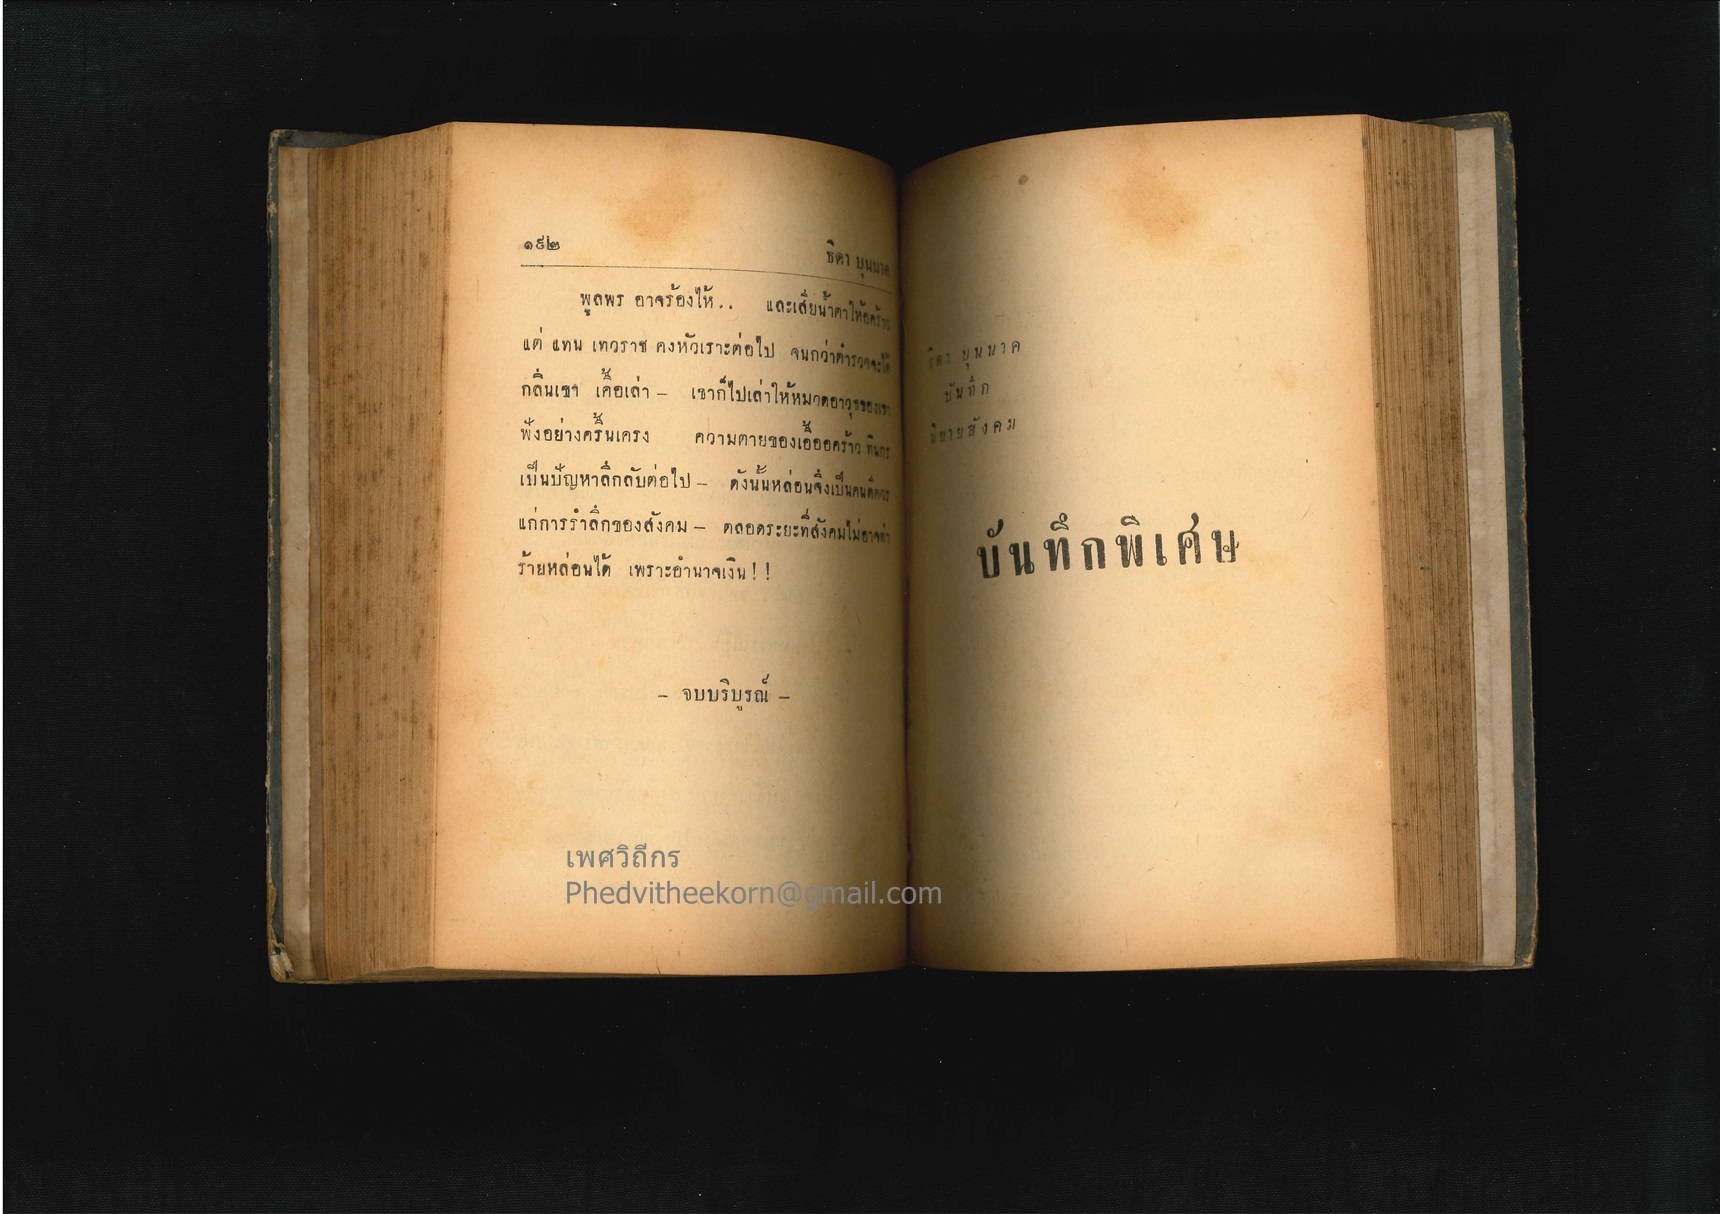 ๑๙๒
ธิดา บุนนาค
พูลพร อาจร้องไห้.. และเสียน้ำตาให้อคร้าว
แต่ แทน เทวราช คงหัวเราะต่อไป จนกว่าตำรวจจะได้
กลิ่นเขา เคื้อเล่า – เขาก็ไปเล่าให้หมาดอาวุธของเขา
ฟังอย่างครื้นเครง ความตายของเอื้ออคร้าว ทินกร
เป็นปัญหาลึกลับต่อไป – ดังนั้นหล่อนจึงเป็นคนดีควร
แก่การรำลึกของสังคม – ตลอดระยะที่สังคมไม่อาจทำ
ร้ายหล่อนได้ เพราะอำนาจเงิน!!
– จบบริบูรณ์ –
ธิดา บุนนาค
บันทึก
นิยายสังคม
บันทึกพิเศษ
เพศวิถีกร
Phedvitheekorn@gmail.com